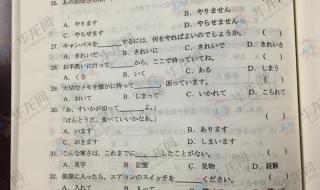 26. あのお
A. やります B. やりません
C. やらせます D. やらせません
27. キャンパスを______するには、何をやればよいのでしょうか。 ( )
A. きれいだ B. きれいに C. きれいで D. きれいな
28. お手洗いに行って______から、ここで待っていてね。 ( )
A. くる B. いく C. ある D. しまう
29. 大切なメモを誰かに持って______、困っています。 ( )
A. おいて B. しまって C. いかれて D. こられて
30. 「あ、すいかが切って______よ。」
「ほんとうだ。食べていいかなあ。」 ( )
A. います B. あります
C. おきます D. しまいます
31. こんな寒さは、これまでに______したことがない。 ( )
A. 見学 B. 記憶 C. 見物 D. 経験
32. 部屋に入ったら、エアコンのスイッチを______ください。 (
A. 入れて B.